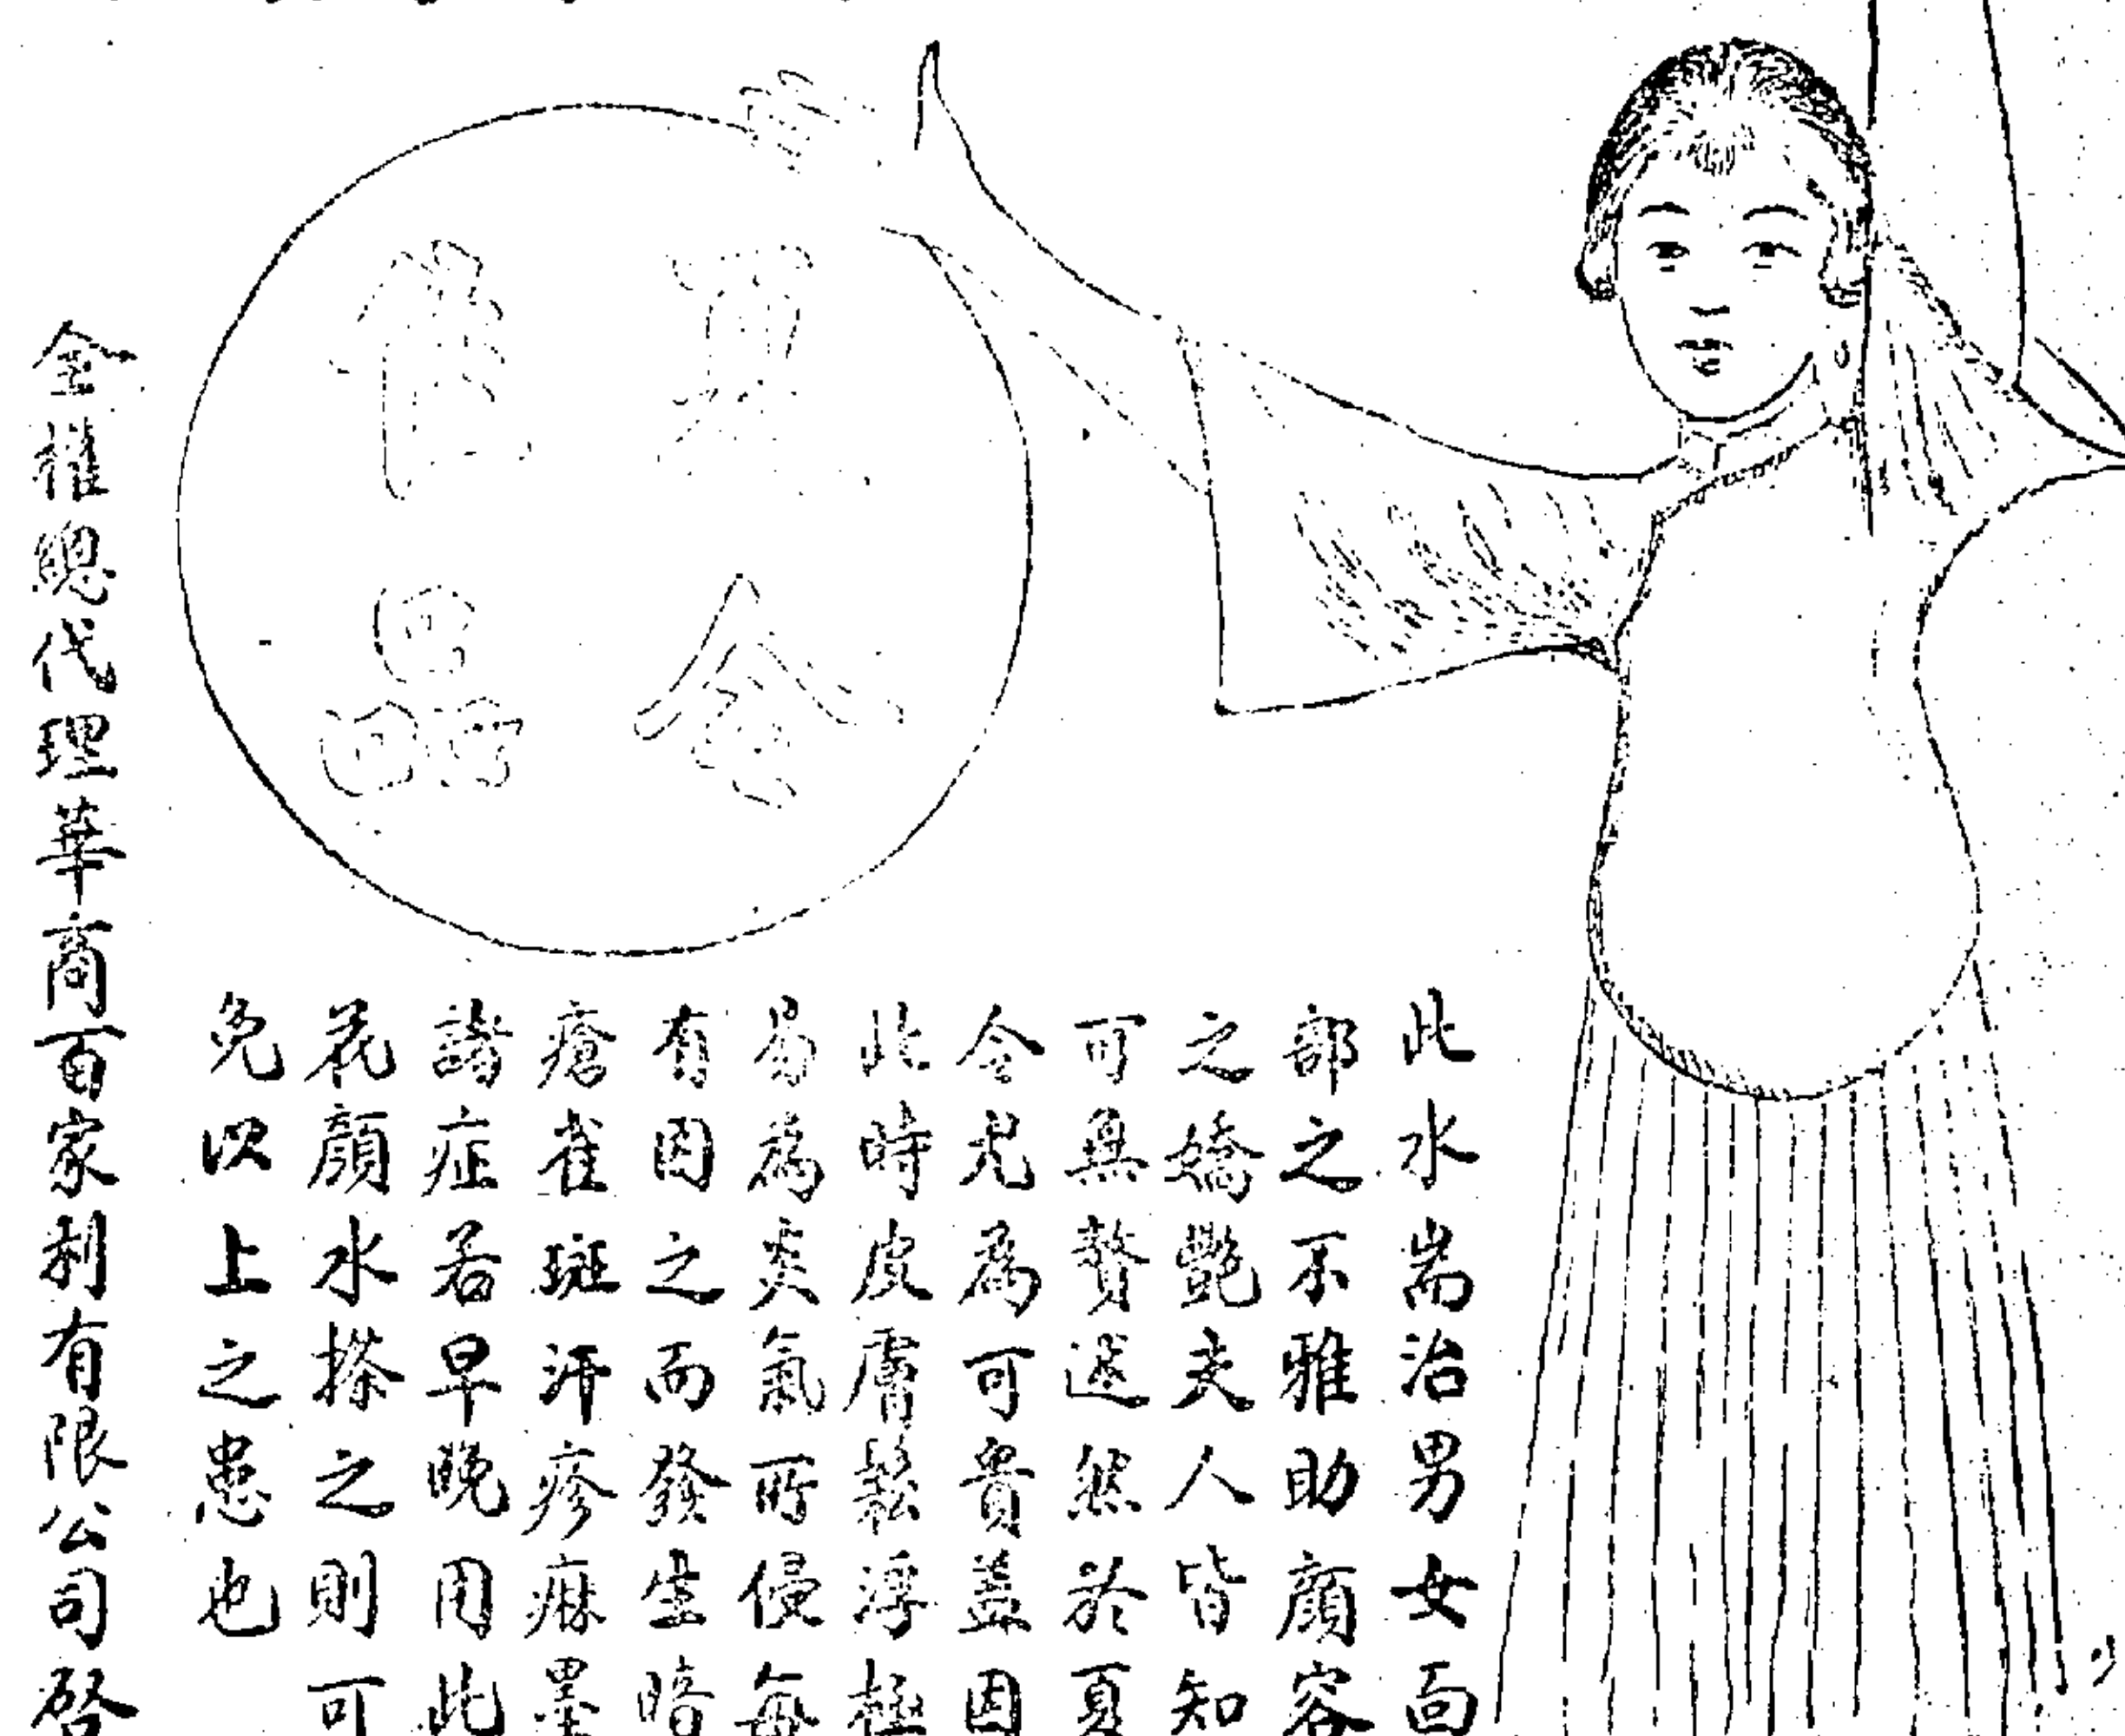 夏令
佳品
此水耑治男女面
部之不雅助顏容
之嬌艷夫人皆知
可無贅述然於夏
令尤為可貴盖因
此時皮膚鬆浮極
易為炎氣所侵每
有因之而發生暗
瘡雀斑汗疹痲墨
諸症若早晚用此
花顏水搽之則可
免以上之患也
全權總代理華商百家利有限公司啓